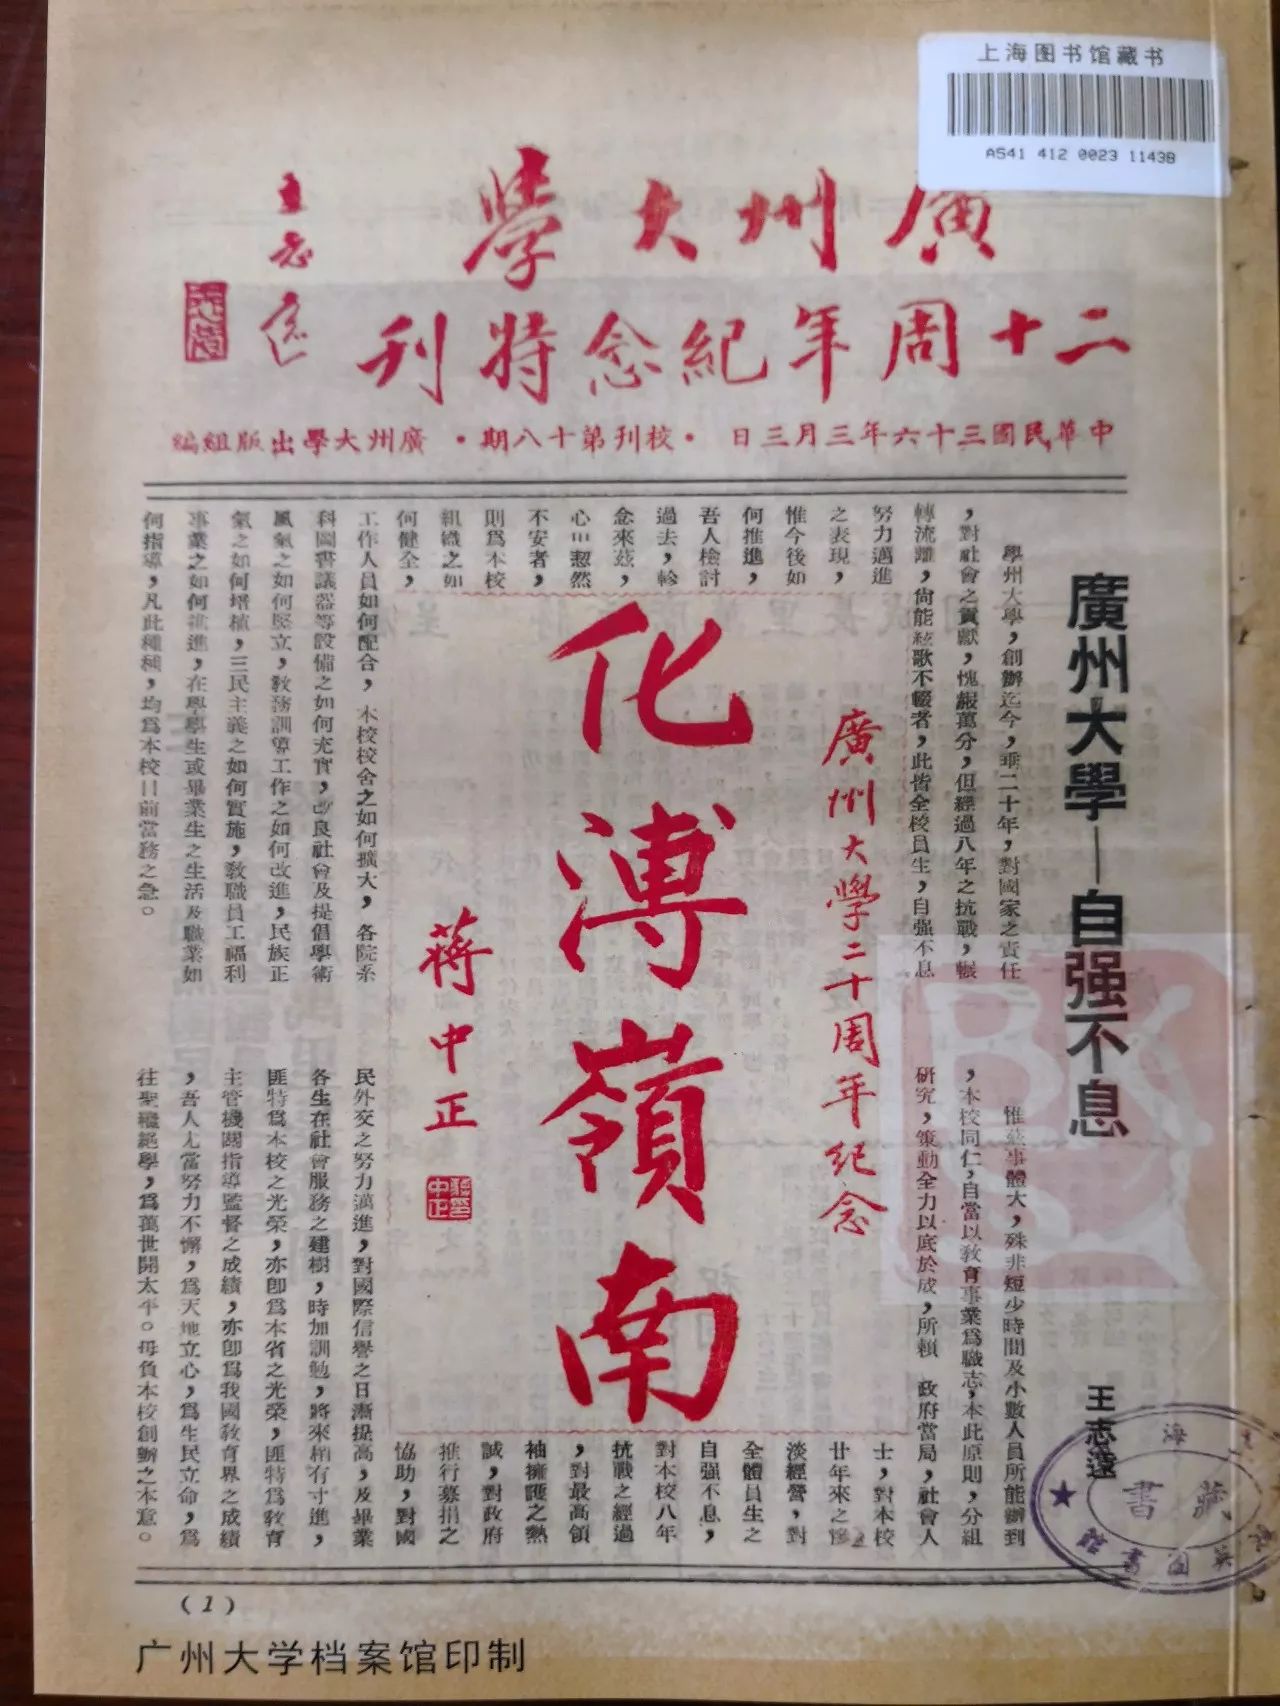 上海图书馆藏书
A541 412 0023 1143B
廣州大學
二十周年紀念特刊
王志遠
中華民國三十六年三月三日 · 校刊第十八期 · 廣州大學出版組編
廣州大學—自强不息
王志遠
學州大學，創辦迄今，垂二十年，對國家之責任
，對社會之貢獻，愧赧萬分，但經過八年之抗戰，輾
轉流離，尙能絃歌不輟者，此皆全校員生，自强不息
努力邁進
之表現，
惟今後如
何推進，
吾人檢討
過去，軫
念來茲，
心中惄然
不安者，
則爲本校
組織之如
何健全，
工作人員如何配合，本校校舍之如何擴大，各院系
科圖書議器等設備之如何充實，改良社會及提倡學術
風氣之如何堅立，敎務訓導工作之如何改進，民族正
氣之如何增植，三民主義之如何實施，敎職員工福利
事業之如何推進，在學學生或畢業生之生活及職業如
何指導，凡此種種，均爲本校目前當務之急。
惟茲事體大，殊非短少時間及小數人員所能辦到
，本校同仁，自當以敎育事業爲職志，本此原則，分組
研究，策動全力以底於成，所賴　政府當局，社會人
士，對本校
廿年來之慘
淡經營，對
全體員生之
自强不息，
對本校八年
抗戰之經過
，對最高領
袖擁護之熱
誠，對政府
推行募捐之
協助，對國
民外交之努力邁進，對國際信譽之日漸提高，及畢業
各生在社會服務之建樹，時加訓勉，將來稍有寸進，
匪特爲本校之光榮，亦卽爲本省之光榮，匪特爲敎育
主管機關指導監督之成績，亦卽爲我國敎育界之成績
，吾人尤當努力不懈，爲天地立心，爲生民立命，爲
往聖繼絕學，爲萬世開太平。毋負本校創辦之本意。
廣州大學二十周年紀念
化溥嶺南
蔣中正
蔣中正印
藏書
(1)
广州大学档案馆印制